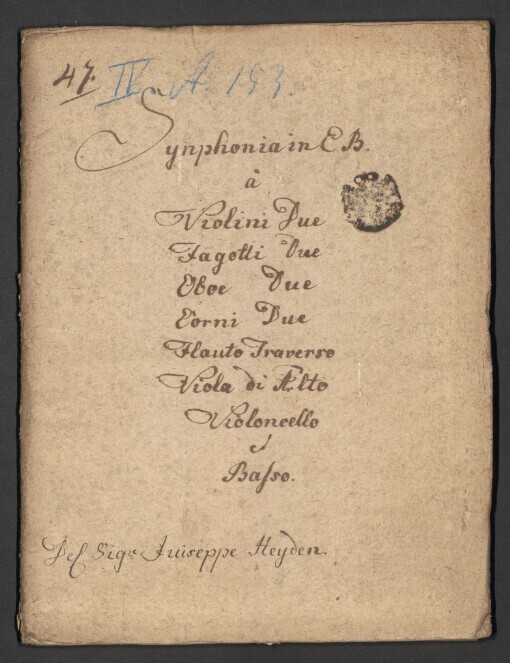 47. IV A. 153.
Synphonia in E B.
à
Violini Due
Fagotti Due
Oboe Due
Corni Due
Flauto Traverso
Viola di Alto
Violoncello
e
Basso.
Del Sigr Juiseppe Heyden.